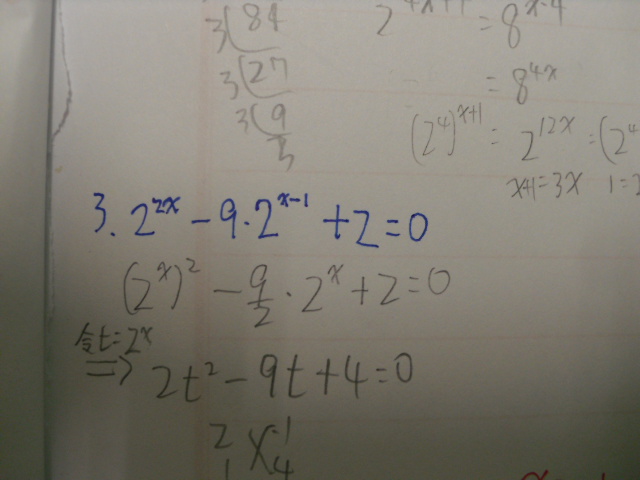 3 84
3 27
3 9
3
= 8^{x-4}
= 8^{4x}
(2^4)^{x+1} = 2^{12x} = (2^4
x+1=3x 1=2
3. 2^{2x} - 9·2^{x-1} + 2 = 0
(2^x)^2 - 9/2 · 2^x + 2 = 0
令t=2^x
⇒ 2t² - 9t + 4 = 0
2 -1
1 -4